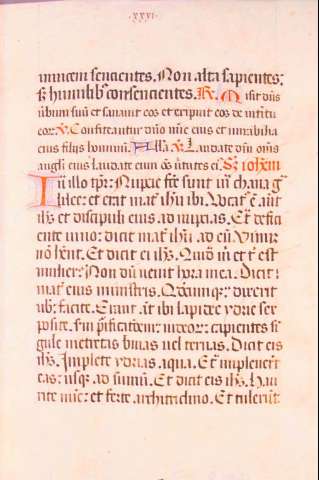 .xxxi.
inuicem sencientes. Non alta sapientes:
s; humilib; consencientes. R. Misit dn̄s
uerbum suū et sanauit eos et eripuit eos de interitu
eor. V. Confiteantur dn̄o mie eius et mirabilia
eius filijs hominū. Alla V. Laudate dn̄m om̄s
angl̄i eius laudate eum om̄s ūtutes ei. S. ioh̄em
In illo tp̄r: Nupcie fc̄e sunt in chana ga
lilee: et erat mat̄ ih̄u ibi. Vocat̄ ē aūt
ih̄s et discipuli eius ad nupcias. Et defici
ente uino: dicit mat̄ ih̄u ad eū. Vinum
nō hent. Et dicit ei ih̄s. Quid m̄ et t̄ est
mulier? Non dū uenit hora mea. Dicit
mat̄ eius ministris. Quodcumq; dixerit
uob: facite. Erant aūt ibi lapidee ydrie sex
posite. s̄m purificacionem iudeor: capientes si
gule metretas binas uel ternas. Dicit eis
ih̄s. Implete ydrias aqua. Et impleuerūt
eas: usq; ad summū. Et dicit eis ih̄s. Hau
rite nūc: et ferte architriclino. Et tulerūt